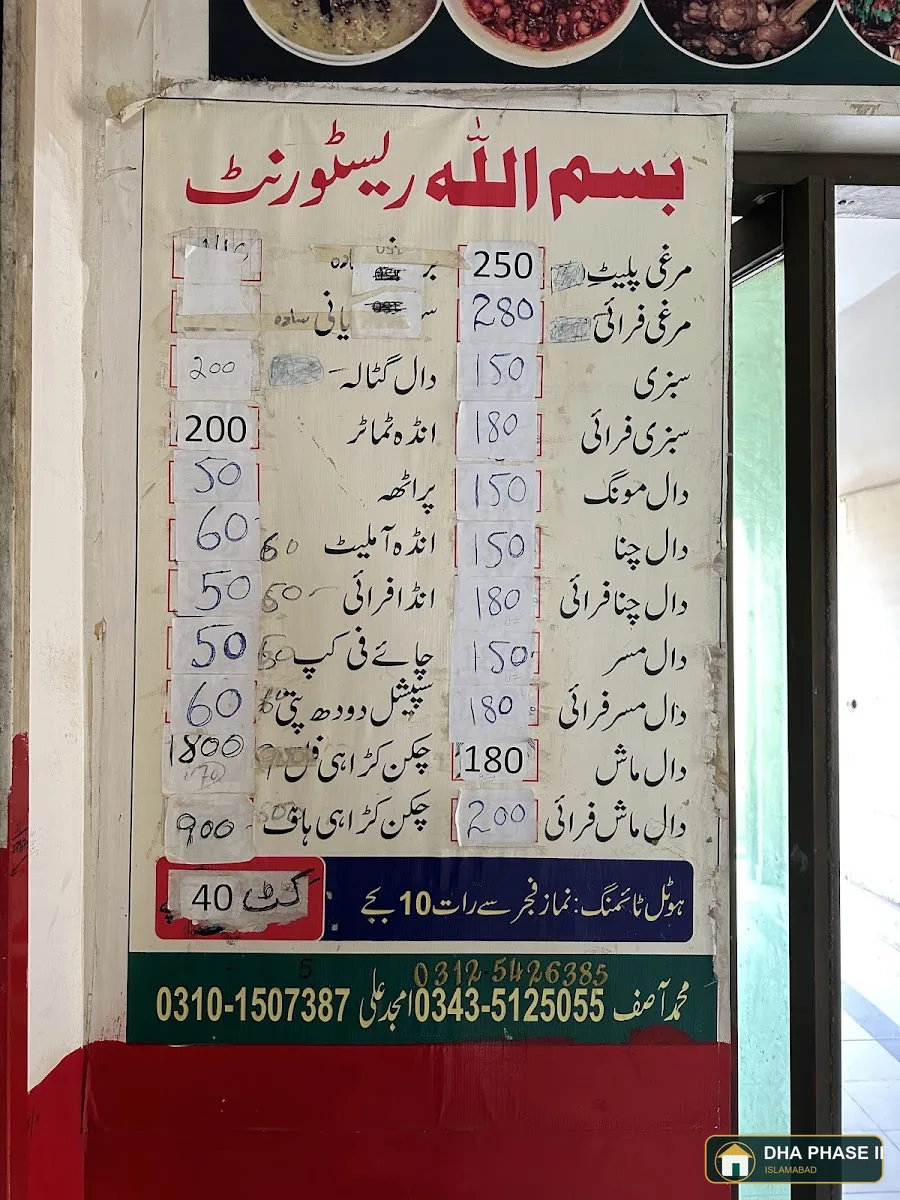 بسم اللہ ریسٹورنٹ
مرغی پلیٹ 250
مرغی فرائی 280
سبزی 150
سبزی فرائی 180
دال مونگ 150
دال چنا 150
دال چنا فرائی 180
دال مسر 150
دال مسر فرائی 180
دال ماش 180
دال ماش فرائی 200
سادہ
دال گٹالہ 200
انڈہ ٹماٹر 200
پراٹھہ 50
انڈہ آملیٹ 60 60
انڈا فرائی 50 50
چائے فی کپ 50 50
سپیشل دودھ پتی 60
چکن کڑاہی فل 1800
چکن کڑاہی ہاف 900
ہوٹل ٹائمنگ: نماز فجر سے رات 10 بجے
کٹ 40
0312-5426385
محمد آصف 0343-5125055 امجد علی 0310-1507387
5
DHA PHASE II
ISLAMABAD